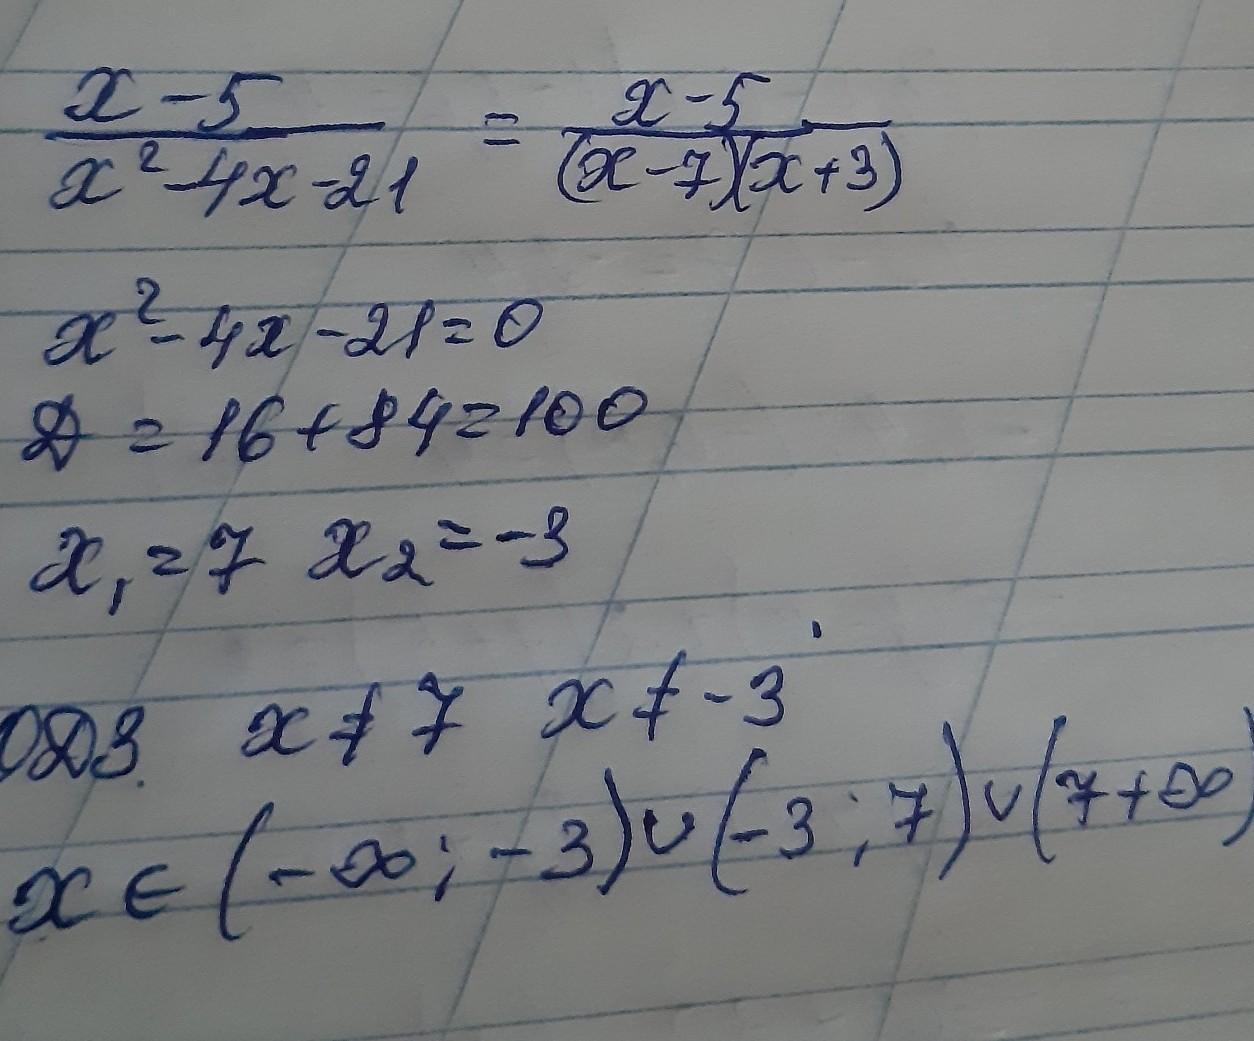 x-5 / x²-4x-21 = x-5 / (x-7)(x+3)
x²-4x-21=0
D = 16+84=100
x₁=7 x₂=-3
ОДЗ. x≠7 x≠-3
x∈(-∞;-3)∪(-3;7)∪(7+∞)